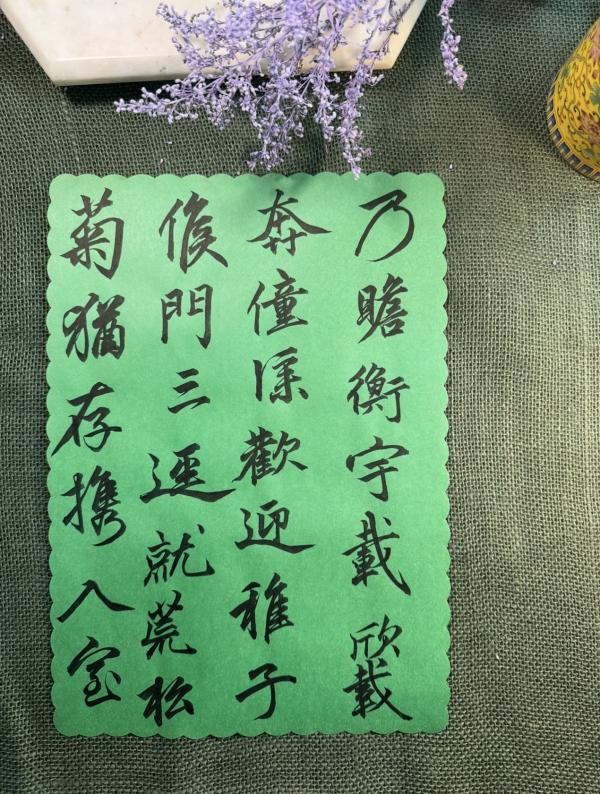 乃瞻衡宇載欣載
奔僮僕歡迎稚子
候門三逕就荒松
菊猶存携入室